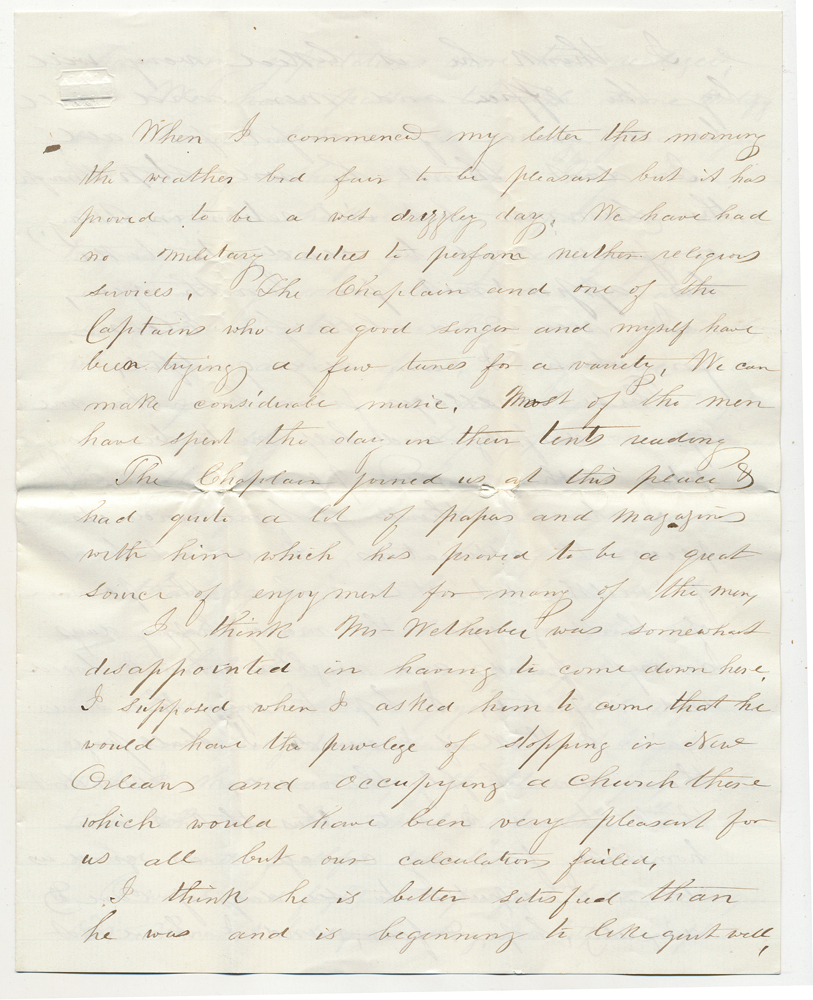 When I commenced my letter this morning
the weather bid fair to be pleasant but it has
proved to be a wet drizzley day. We have had
no military duties to perform neither religious
services. The Chaplain and one of the
Captains who is a good singer and myself have
been trying a few tunes for a variety. We can
make considerable music. Most of the men
have spent the day in their tents reading
The Chaplain joined us at this place &
had quite a lot of papers and magazines
with him which has proved to be a great
source of enjoyment for many of the men,
I think Mr Wetherbee was somewhat
disappointed in having to come down here.
I supposed when I asked him to come that he
would have the privelege of stopping in New
Orleans and occupying a church there
which would have been very pleasant for
us all but our calculations failed,
I think he is better satisfied than
he was and is beginning to like quit well,